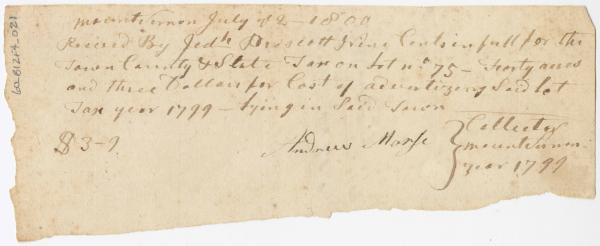 mount vernon July 22 - 1800
Receivd By Jedh Prescott Nine Cents in full for the
Town County & State Tax on Lot no 75 - Forty acres
and three Dollars for Cost of advertizing Said Lot
Tax year 1799 - lying in Said Town
$3-9
Andrew Morse
Collector
mount vernon
year 1799